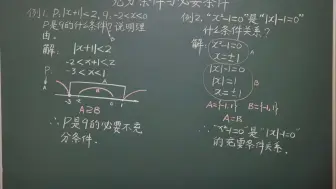 充分条件与必要条件
例1. P: |x+1|<2, q, -2<x<0
P是q的什么条件? 说明理由.
解: |x+1|<2
-2<x+1<2
-3<x<1
P
A
B
-3 -2 0 1
A⊇B
∴P是q的必要不充分条件.
例2. "x²-1=0"是"|x|-1=0"
什么条件关系?
解: x²-1=0
x=±1
|x|-1=0
|x|=1
x=±1
A={-1,1} B={-1,1}
A=B
∴"x²-1=0"是"|x|-1=0"
的充要条件关系.